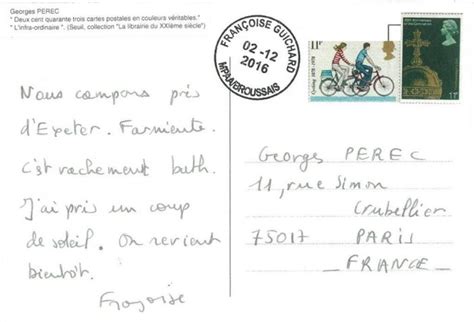 Georges PEREC
" Deux cent quarante trois cartes postales en couleurs véritables."
" L'infra-ordinaire ". (Seuil, collection "La librairie du XXIème siècle")
FRANÇOISE GUICHARD
02-12
2016
MPA/BROUSSAIS
11p
Cycling 1878-1978
11p
Nous campons près
d'Exeter. Farniente.
C'est vachement bath.
J'ai pris un coup
de soleil. On revient
bientôt.
Françoise
Georges PEREC
11, rue Simon
Crubellier
75017 PARIS
FRANCE